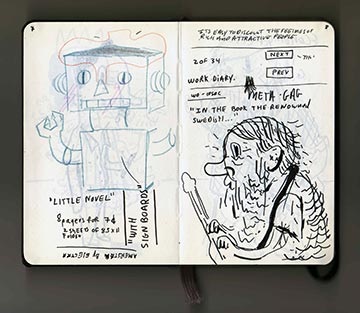 "LITTLE NOVEL"
8 pages for 7d
2 SHEETS OF 8.5 x 11
FOLDED
"WITH
SIGN BOARDS"
by
IT'S EASY TO DISCOUNT THE FEELINGS OF
RICH AND ATTRACTIVE PEOPLE.
NEXT
2 OF 34
PREV
WORK DIARY.
META-GAG
"IN THE BOOK THE RENOWNED
SWEDISH..."